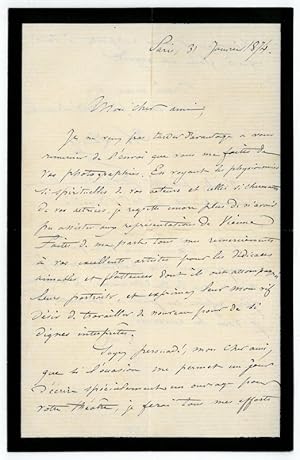 Paris, 31 Janvier 1874.
Mon cher ami,
Je ne veux pas tarder davantage à vous
remercier de l'envoi que vous me faites de
vos photographies. En voyant les physionomies
si spirituelles de vos acteurs et celles si charmantes
de vos actrices, je regrette encore plus de n'avoir
pu assister aux représentations de Vienne
Faites de ma part tous mes remerciements
à vos excellents artistes pour les dédicaces
aimables et flatteuses dont ils ont accompagné
leurs portraits, et exprimez leur mon vif
désir de travailler de nouveau pour de si
dignes interprètes.
Soyez persuadé, mon cher ami,
que si l'occasion me permet un jour
d'écrire spécialement un ouvrage pour
votre théâtre, je ferai tous mes efforts